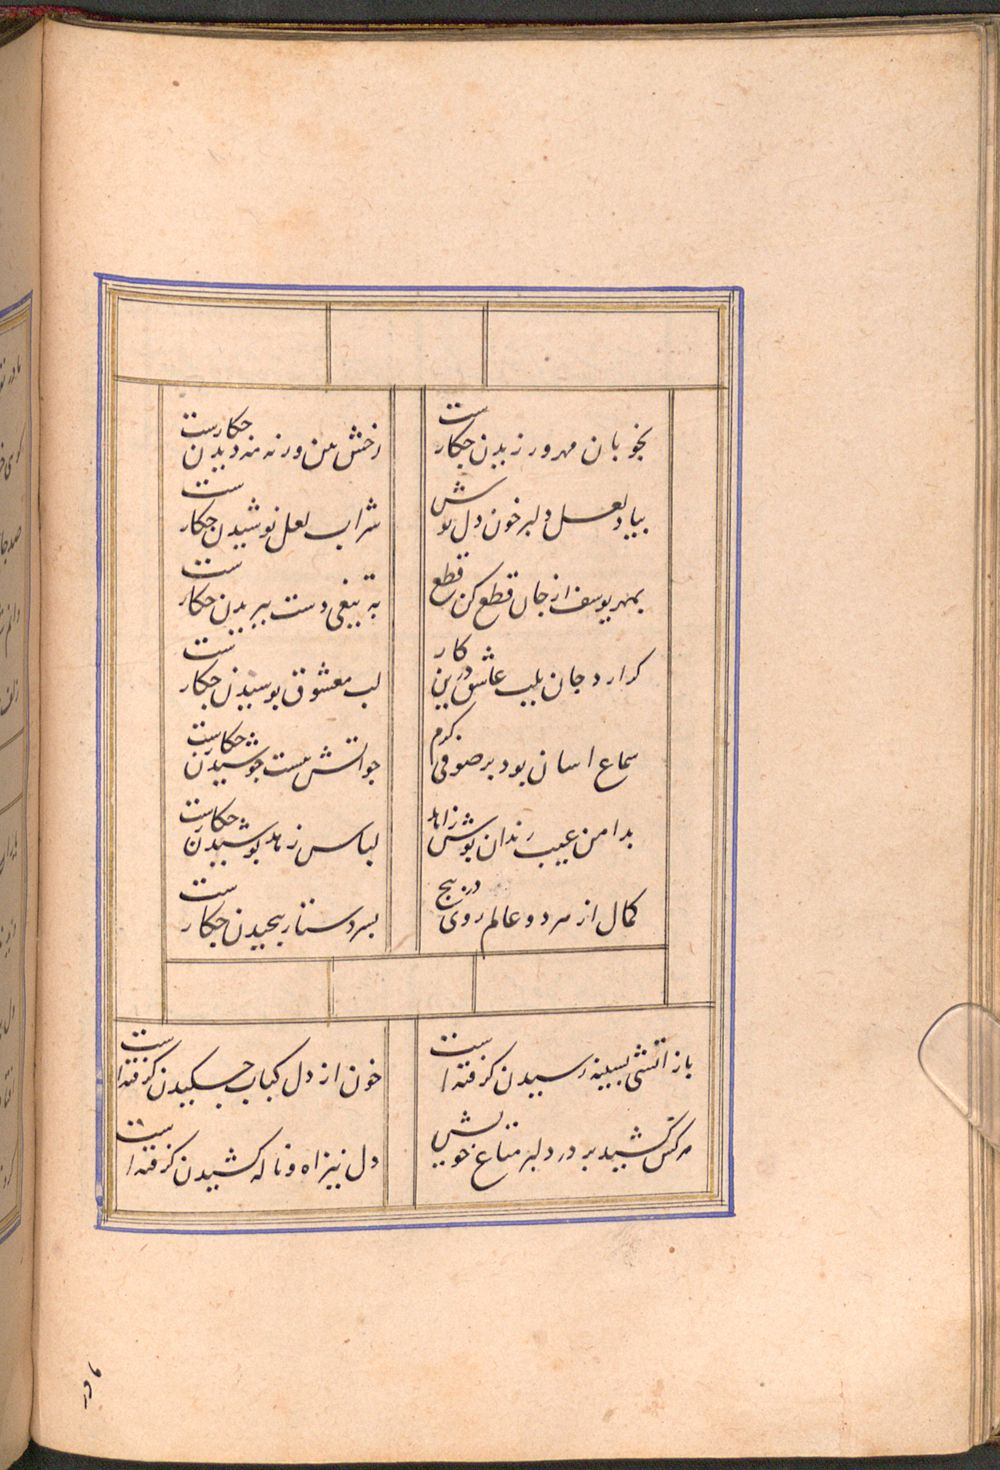 بخوبان مهر ورزیدن چکارست
رخش بین ورنه مه دیدن چکارست
بیاد لعل دلبر خون دل نوش
شراب لعل نوشیدن چکارست
بمهر یوسف از جان قطع کن قطع
به تیغی دست ببریدن چکارست
کرارد جان بلب عاشق درین کار
لب معشوق بوسیدن چکارست
سماع اسان بود بر صوفی کرم
جو اتش نیست جوشیدن چکارست
بدامن عیب رندان پوش زاهد
لباس زهد پوشیدن چکارست
کمال از هر دو عالم روی در پیچ
بسر دستار پیچیدن چکارست
باز اتشی بسینه رسیدن کرفته است
خون از دل کباب چکیدن کرفته است
هر کس کشید بر در دلبر متاع خویش
دل نیز اه و ناله کشیدن کرفته است